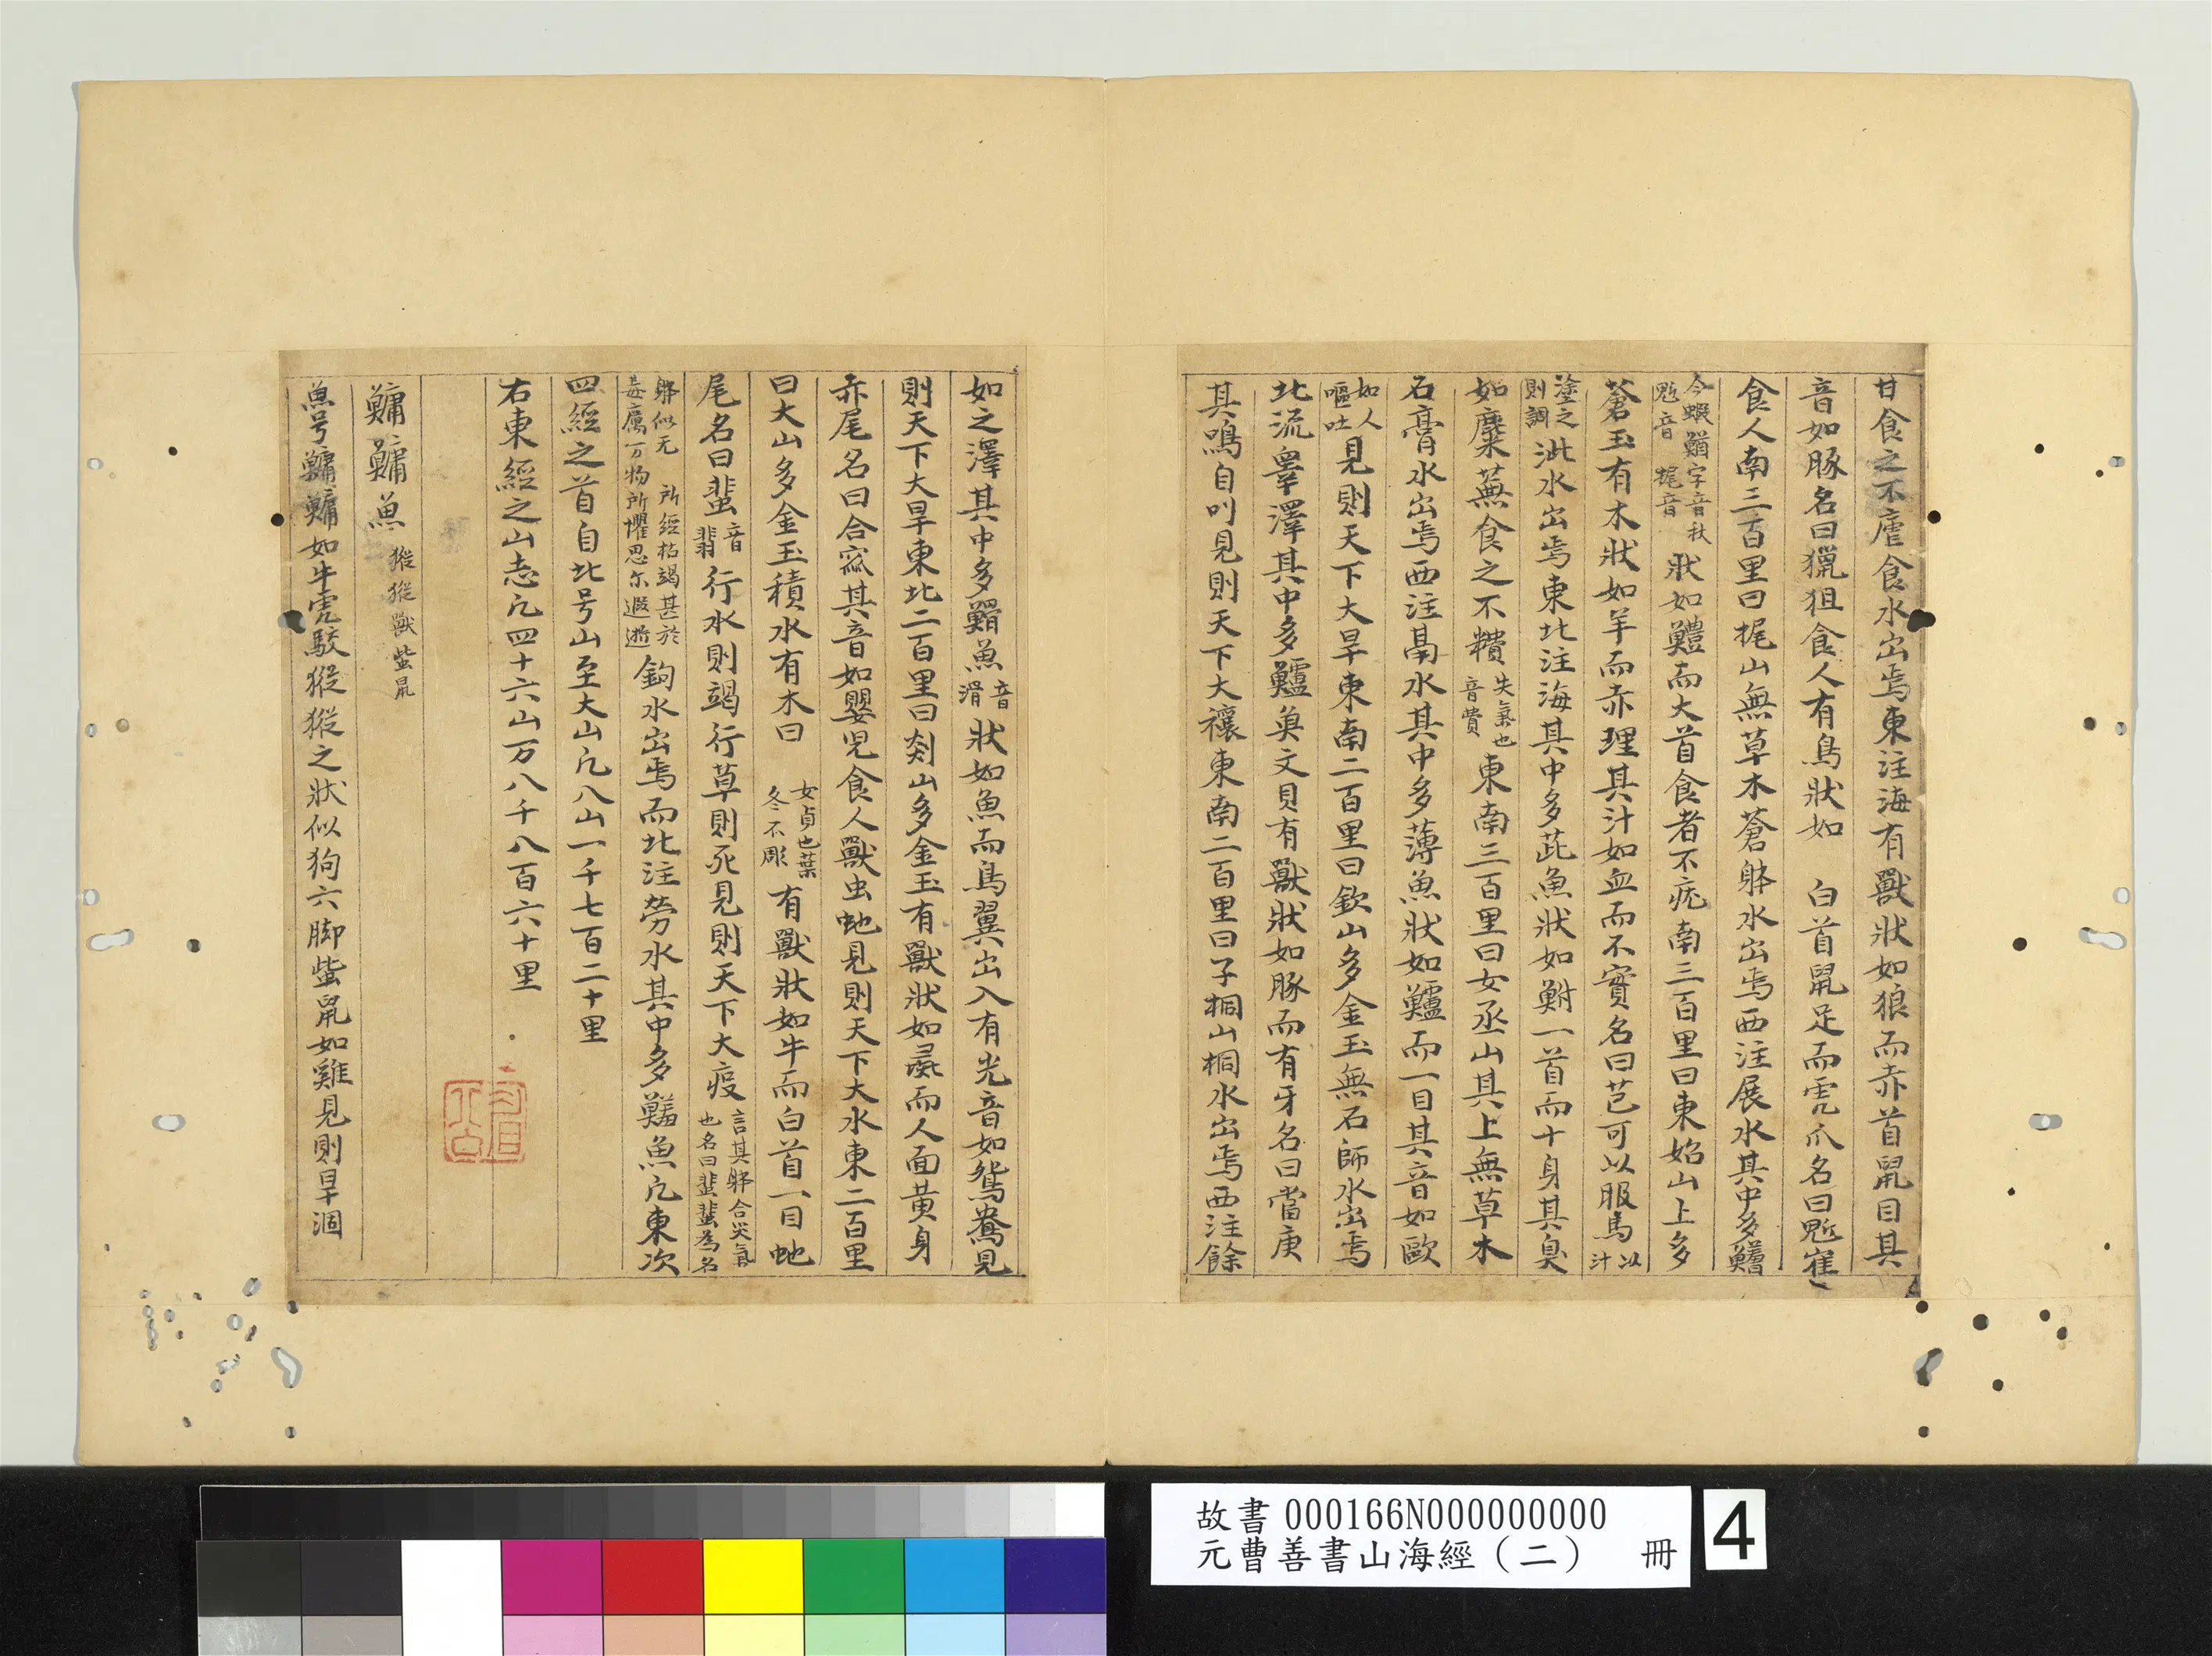 甘食之不瘧食水出焉東注海有獸狀如狼而赤首鼠目其
音如豚名曰獦狙食人有鳥狀如 白首鼠足而虎爪名曰鬿雀
食人南三百里曰㭫山無草木蒼躰水出焉西注展水其中多鱃
今蝦鰌字音秋
鬿音 㭫音
狀如鱧而大首食者不疣南三百里曰東始山上多
蒼玉有木狀如羊而赤理其汁如血而不實名曰芑可以服馬
以汁
塗之則調
泚水出焉東北注海其中多茈魚狀如鮒一首而十身其臭
如麋蕪食之不糟
失氣也音費
東南三百里曰女烝山其上無草木
石膏水出焉西注鬲水其中多薄魚狀如鱣而一目其音如歐
如人嘔吐
見則天下大旱東南二百里曰欽山多金玉無石師水出焉
北流皋澤其中多鱃魚文貝有獸狀如豚而有牙名曰當庚
其鳴自叫見則天下大穰東南二百里曰子桐山桐水出焉西注餘
如之澤其中多䱻魚
音滑
狀如魚而鳥翼出入有光音如鴛鴦見
則天下大旱東北二百里曰剡山多金玉有獸狀如彘而人面黃身
赤尾名曰合窳其音如嬰児食人獸虫虵見則天下大水東二百里
曰大山多金玉積水有木曰
女貞也葉冬不彫
有獸狀如牛而白首一目虵
尾名曰蜚
音翡
行水則竭行草則死見則天下大疫
言其躰含災氣也名曰蜚蜚為名
躰似无 所經枯竭甚於
毒厲万物所懼思尓遐逝
鉤水出焉而北注勞水其中多鱃魚凢東次
四經之首自北号山至大山凢八山一千七百二十里
右東經之山志凢四十六山万八千八百六十里
鱅鱅魚
猣猣獸 蚩鼠
魚号鱅鱅如牛虎駮猣猣之狀似狗六脚蚩鼠如雞見則旱涸
故書 000166N000000000
元曹善書山海經（二） 冊
4